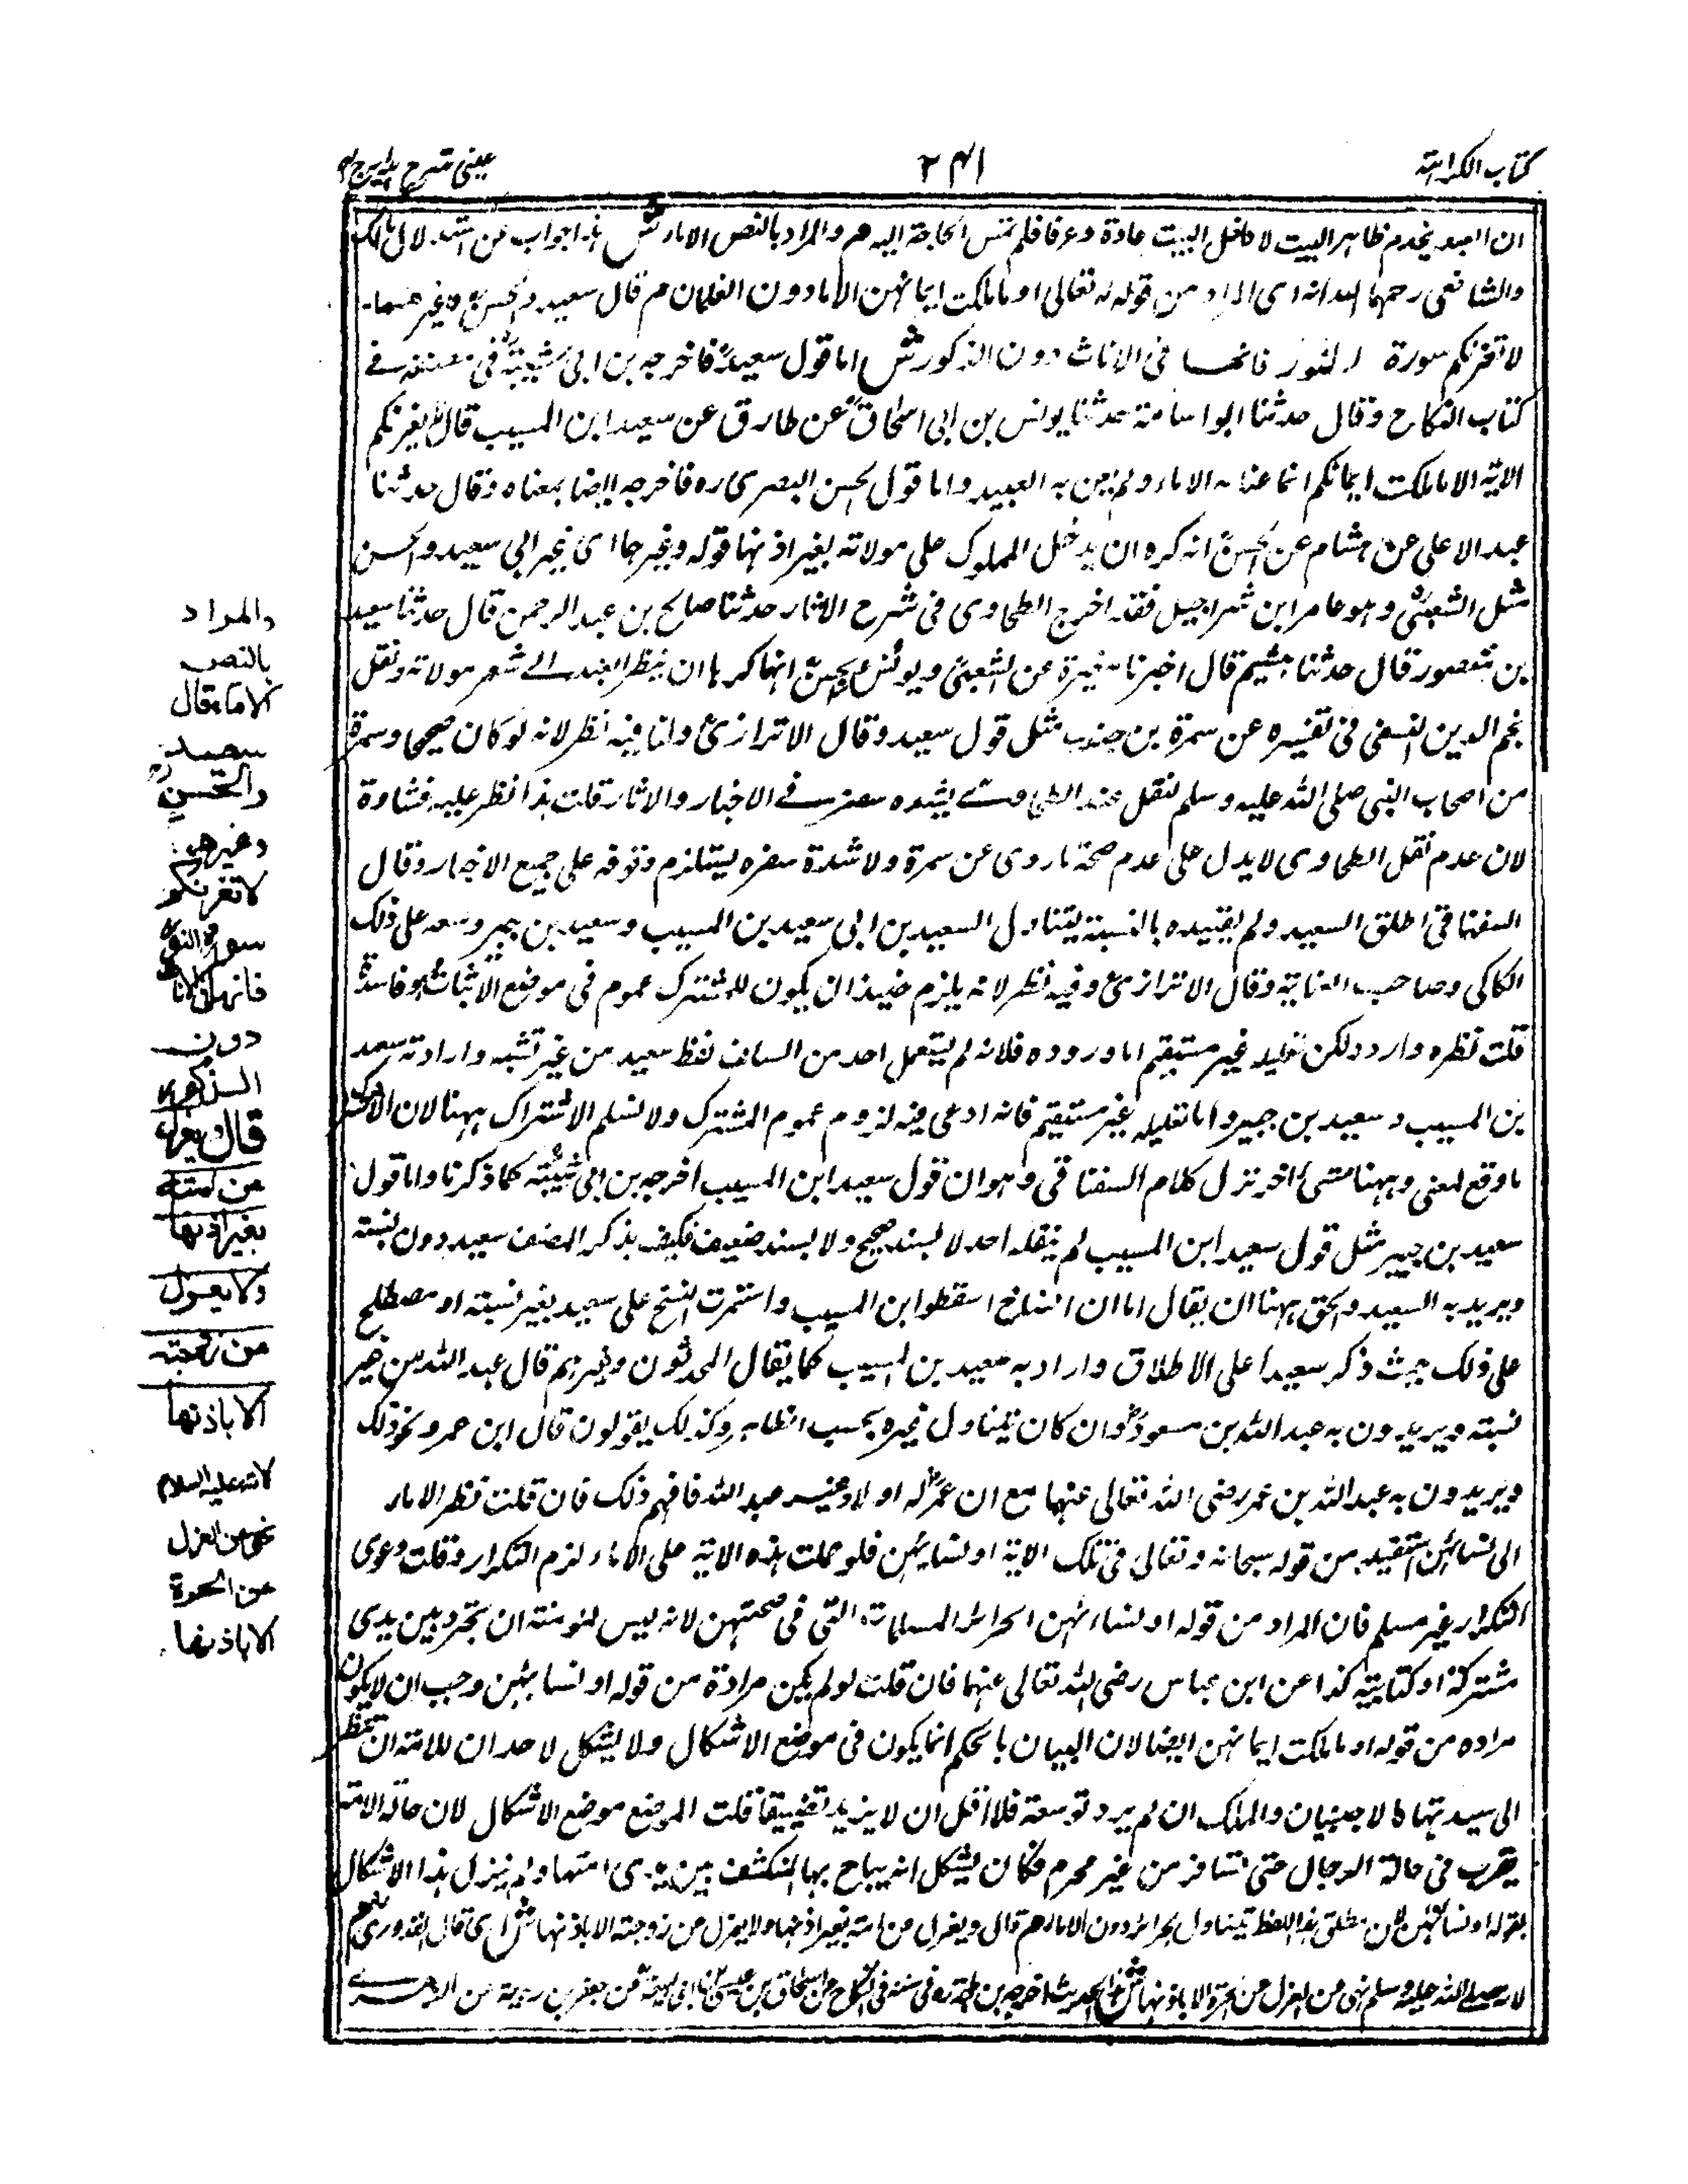 كتاب الكراهية
٢٤١
عينى شرح هداية ج ٤
ان العبد يخدم ظاهر البيت لا داخل البيت عادة وعرفا فلم تمس الحاجة اليه م والمراد بالنص الاماء ش هذا جواب عن استدلال مالك
والشافعى رحمهما الله انه اى المراد من قوله تعالى او ما ملكت ايمانهن الاماء دون الغلمان م قال سعيد والحسن وغيرهما
لا تغرنكم سورة النور فانها فى الاناث دون الذكور ش اما قول سعيد فاخرجه بن ابى شيبة فى مصنفه فى
كتاب النكاح وقال حدثنا ابو اسامة حدثنا يونس بن ابى اسحاق عن طارق عن سعيد ابن المسيب قال لا يغرنكم
الاية الا ما ملكت ايمانكم انما عنا به الاماء ولم يعن به العبيد واما قول الحسن البصرى ره فاخرجه ايضا بمعناه وقال حدثنا
عبد الاعلى عن هشام عن الحسن انه كره ان يدخل المملوك على مولاته بغير اذنها قوله وغيرهما اى غير ابى سعيد والحسن
مثل الشعبى وهو عامر ابن شراحيل فقد اخرج الطحاوى فى شرح الاثار حدثنا صالح بن عبد الرحمن قال حدثنا سعيد
بن منصور قال حدثنا هشيم قال اخبرنا مغيرة عن الشعبى ويونس عن الحسن انهما كرها ان ينظر العبد الى شعر مولاته ونقل
نجم الدين النسفى فى تفسيره عن سمرة بن جندب مثل قول سعيد وقال الاترازى ولنا فيه نظر لانه لو كان صحيحا وسمرة
من اصحاب النبى صلى الله عليه وسلم لنقل عند الطحاوى بشدة سفره فى الاخبار والاثار قلت هذا نظر عليه غشاوة
لان عدم نقل الطحاوى لا يدل على عدم صحة ما روى عن سمرة ولا شدة سفره يستلزم وقوفه على جميع الاخبار وقال
السغناقى اطلق السعيد ولم يقيده بالنسبة ليتناول السعيد بن ابى سعيد بن المسيب وسعيد بن جبير وسعه على ذلك
الكاكى وصاحب العناية وقال الاترازى وفيه نظر لانه يلزم حينئذ ان يكون للمشترك عموم فى موضع الاثبات وهو فاسد
قلت نظره وارد ولكن تعليله غير مستقيم اما وروده فلانه لم يستعمل احد من السلف لفظ سعيد من غير نسبة وارادته سعيد
بن المسيب وسعيد بن جبير واما تعليله غير مستقيم فانه ادعى فيه لزوم عموم المشترك ولا نسلم الاشتراك ههنا لان المشترك
ما وقع لمعنى وههنا شئ اخر تزل كلام السغناقى وهو ان قول سعيد ابن المسيب اخرجه بن ابى شيبة كما ذكرنا واما قول
سعيد بن جبير مثل قول سعيد ابن المسيب لم ينقله احد لا بسند صحيح ولا بسند ضعيف فكيف يذكر المصنف سعيد دون نسبته
ويريد به السعيد والحق ههنا ان يقال اما ان النساخ اسقطوا ابن المسيب واستمرت النسخ على سعيد بغير نسبته او مصطلح
على ذلك حيث ذكر سعيدا على الاطلاق واراد به سعيد بن المسيب كما يقال المحدثون وغيرهم قال عبد الله من غير
نسبته ويريدون به عبد الله بن مسعود وان كان يتناول غيره بحسب الظاهر وكذلك يقولون قال ابن عمر ونحو ذلك
ويريدون به عبد الله بن عمر رضى الله تعالى عنهما مع ان عمر له اولاد غير عبد الله فافهم ذلك فان قلت نظر الاماء
الى نسائهن استفيد من قوله سبحانه وتعالى فى تلك الاية او نسائهن فلو حملت هذه الاية على الاماء لزم التكرار وقلت دعوى
التكرار غير مسلم فان المراد من قوله او نسائهن الحرائر المسلمات التى فى صحبتهن لانه ليس لمؤمنة ان تتجرد بين يدى
مشركة او كتابية كذا عن ابن عباس رضى الله تعالى عنهما فان قلت لو لم يكن مرادة من قوله او نسائهن وجب ان لا يكون
مراده من قوله او ما ملكت ايمانهن ايضا لان البيان بالحكم انما يكون فى موضع الاشكال ولا يشكل لاحد ان للامة ان تنظر
الى سيدتها كالاجنبيات والملك ان لم يرد توسعة فلا اقل ان لا يزيد تضييقا قلت الموضع موضع الاشكال لان حالة الامة
يقرب فى حالة الرجال حتى تسافر من غير محرم فكان يشكل انه يباح بها التكشف بين يدى امتها ولم يزل هذا الاشكال
بقوله او نسائهن لان مطلق هذا اللفظ يتناول الحرائر دون الاماء م قال ويعزل من امته بغير اذنها ولا يعزل من زوجته الا باذنها ش اى قال القدورى م
لانه صلى الله عليه وسلم نهى عن العزل عن الحرة الا باذنها ش هذا الحديث اخرجه بن ماجة فى سننه فى النكاح عن اسحاق بن عيسى عن ابى لهيعة عن جعفر بن ربيعة عن الزهرى
والمراد
بالنص
الاماء قال
سعيد
والحسن
وغيرهما
لا تغرنكم
سورة النور
فانها فى الاناث
دون
الذكور
قال يعزل
عن امته
بغير اذنها
ولا يعزل
من زوجته
الا باذنها
لانه عليه السلام
نهى عن العزل
عن الحرة
الا باذنها